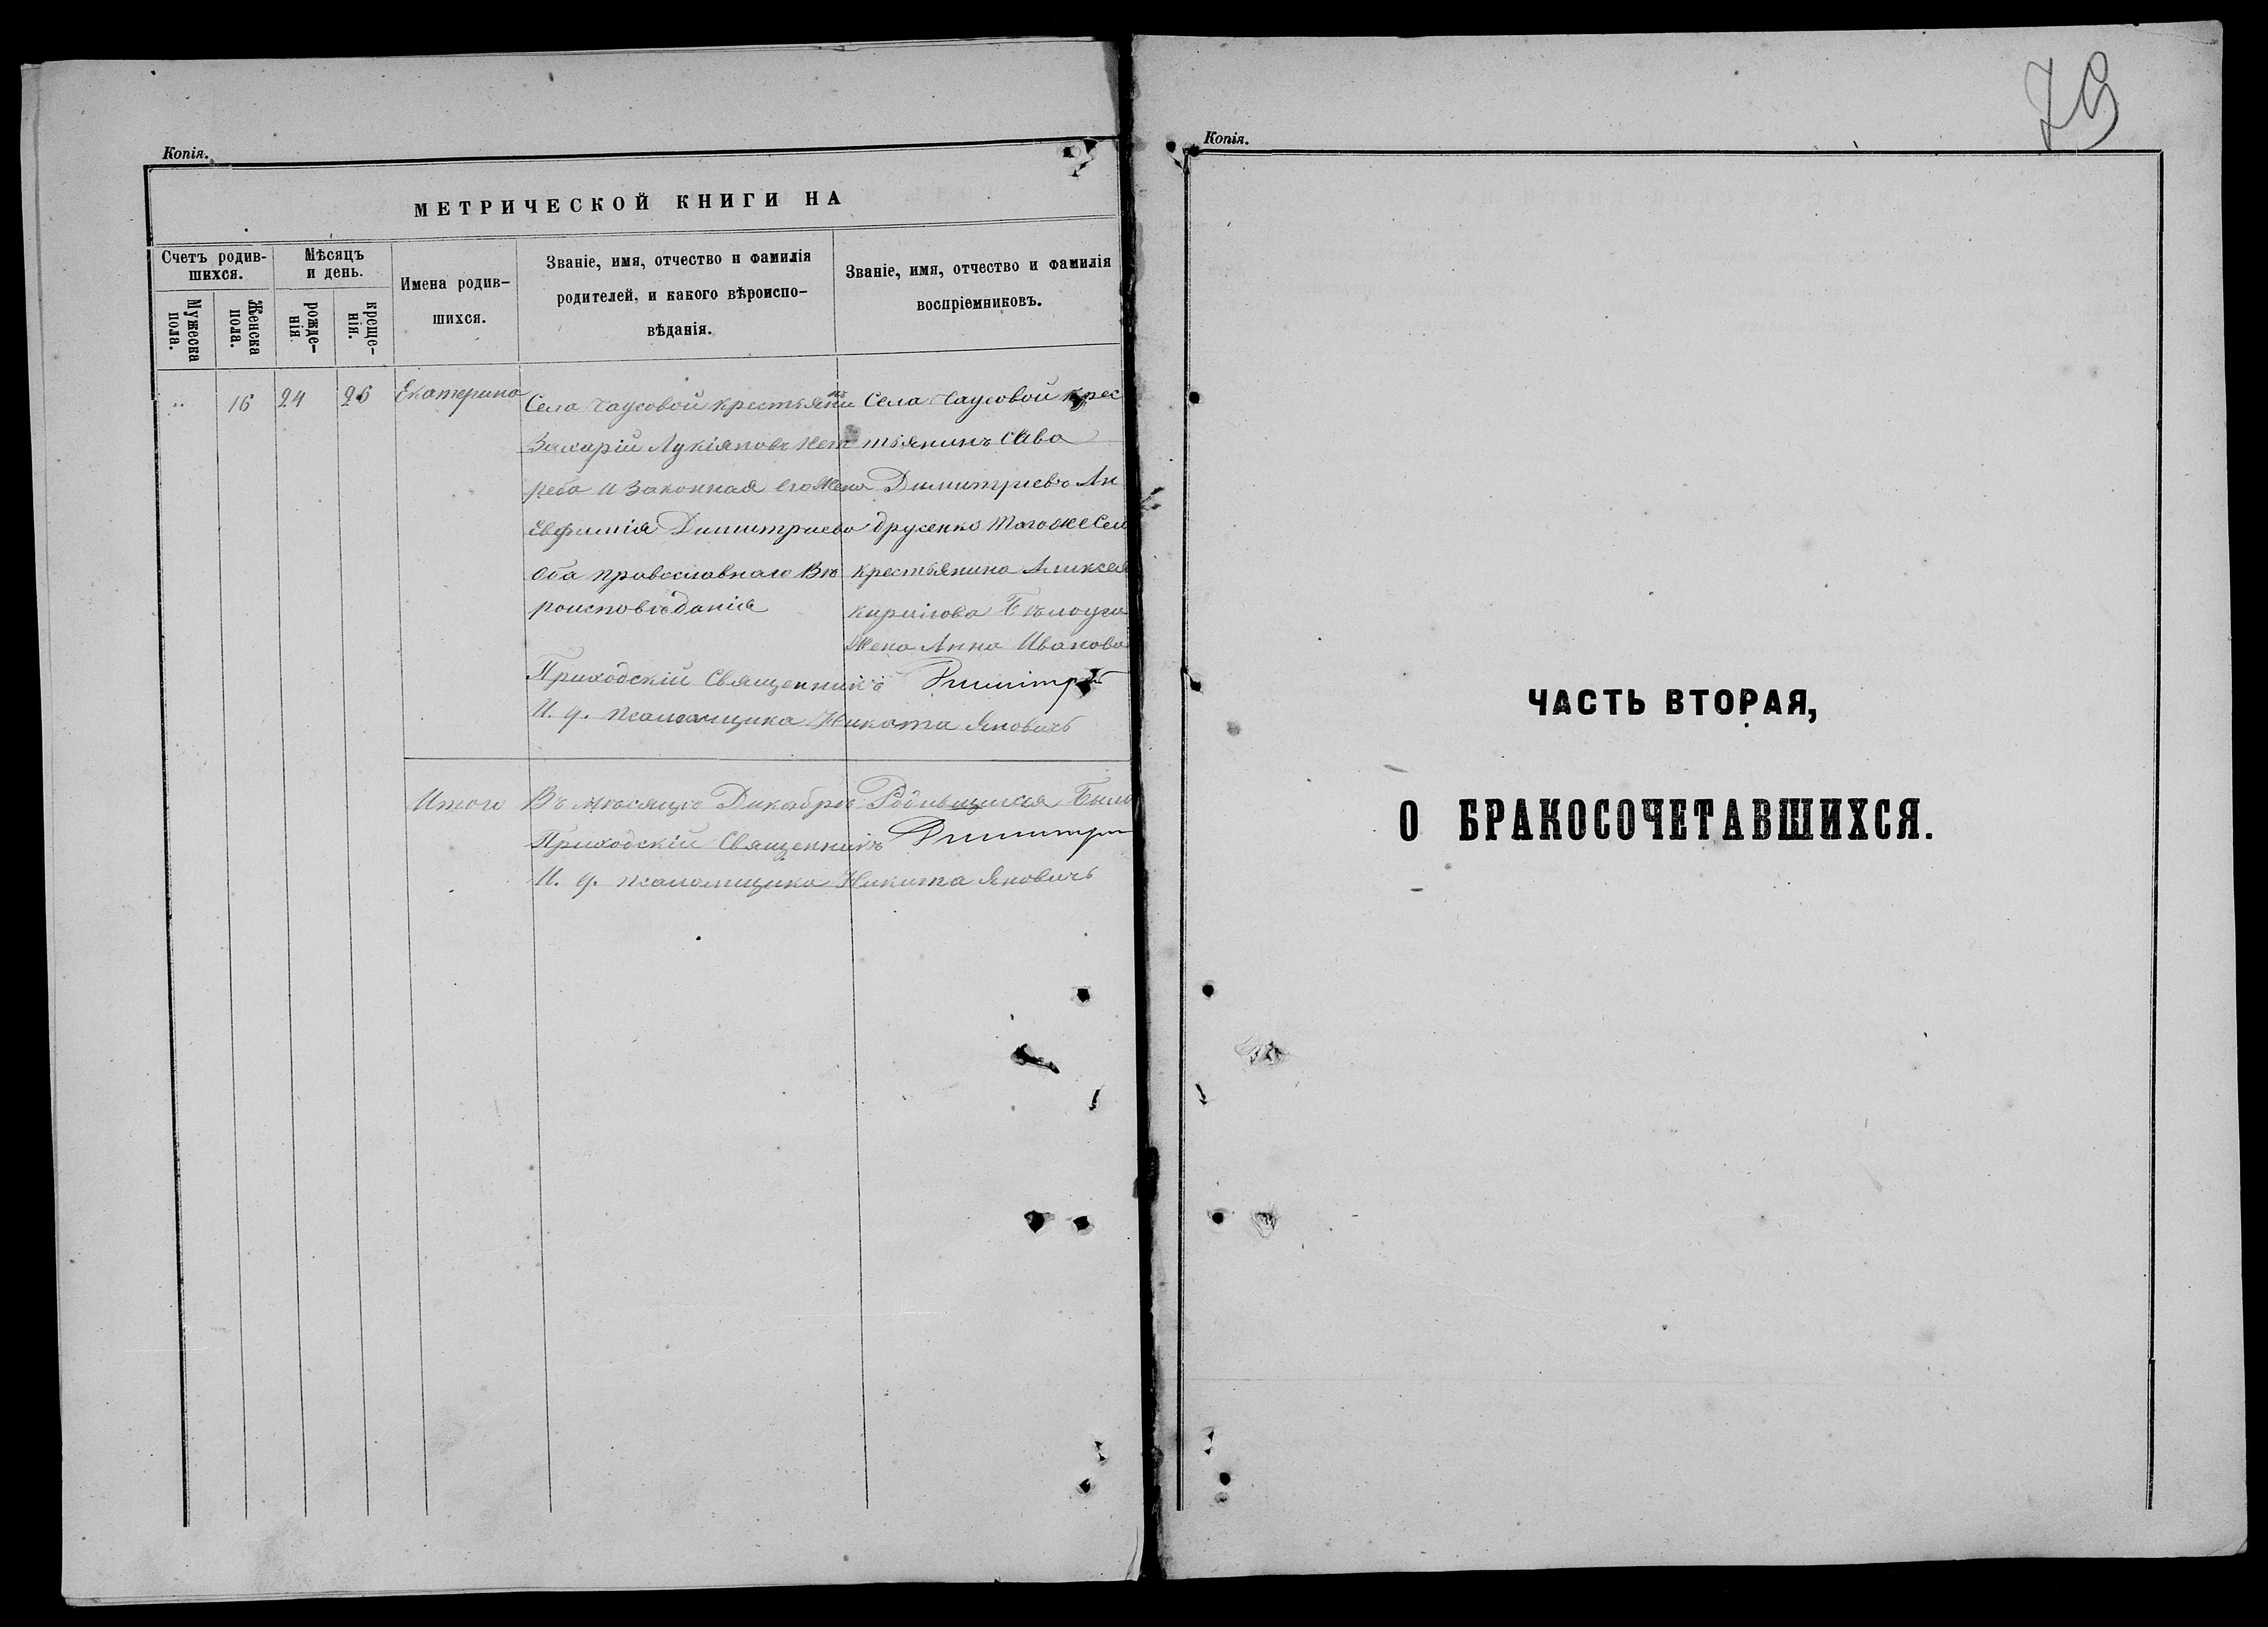 Копія.
МЕТРИЧЕСКОЙ КНИГИ НА
Счетъ родив-
шихся.
Мужеска
пола.
Женска
пола.
Мѣсяцъ
и день.
рожде-
нія
креще-
нія.
Имена родив-
шихся.
Званіе, имя, отчество и фамилія
родителей, и какого вѣроиспо-
вѣданія.
Званіе, имя, отчество и фамилія
воспріемниковъ.
16 24 26 Екатерина
Села Чаусовой крестьянинъ
Захарій Лукіяновъ Нет
реба и законная его жена
Евфимія Димитриева
Оба православнаго Вѣ
роисповѣданія
Села Чаусовой крес
тьянинъ Сава
Димитриевъ Ан
друсенко тогоже Сел
крестьянина Аликсея
Жена Анна Иванова
Приходскій Священникъ Димитрій
И. д. псаломщика Никита Яновичъ
Итого Въ мѣсяцѣ Дикабрѣ Родившихся Было
Приходскій Священникъ Димитри
И. д. псаломщика Никита Яновичъ
Копія.
79
ЧАСТЬ ВТОРАЯ,
О БРАКОСОЧЕТАВШИХСЯ.